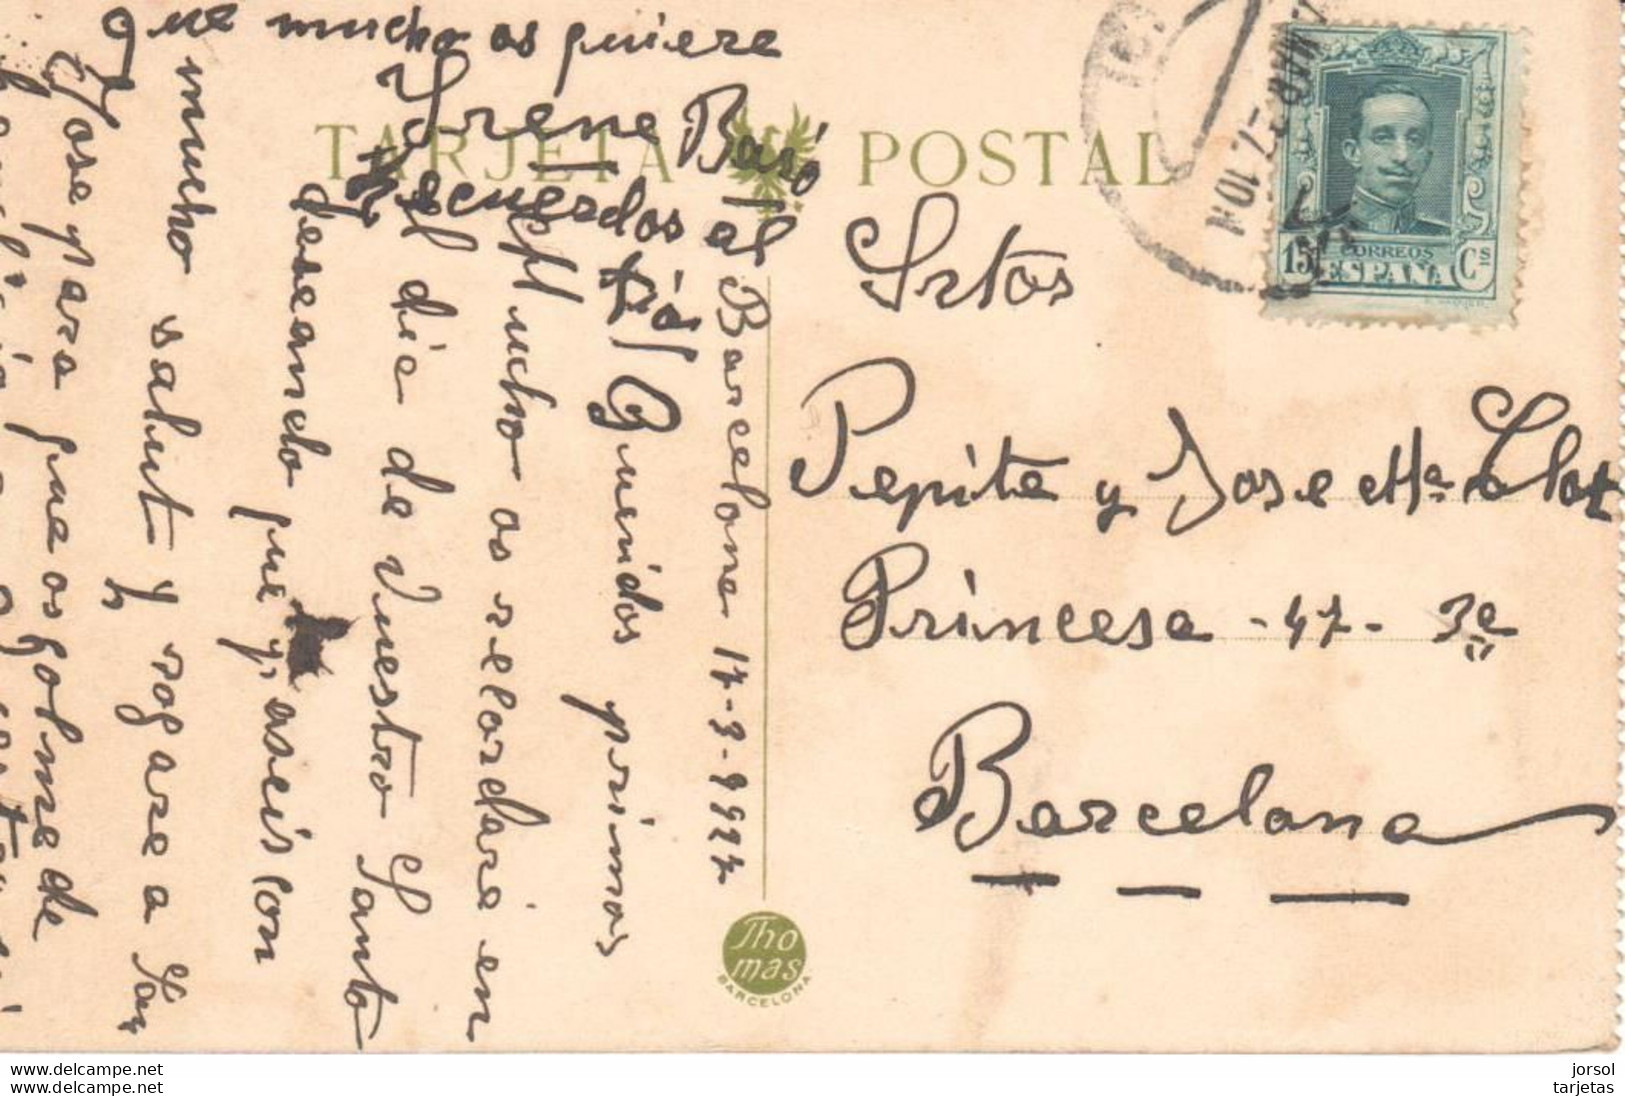 TARJETA POSTAL
Barcelona 17-3-1927
Queridos primos
Mucho os recordaré en
el dia de Vuestro Santo
deseando que
mucho salut y rogare a San
Jose para que os colme de
que mucho os quiere
Irene Baró
Recuerdos al
tio
Srtos
Pepita y Jose Mª Clot
Princesa - 47 - 3º
Barcelona
MAR 27 10N
CORREOS
15 ESPAÑA Cs
Thomas
BARCELONA
www.delcampe.net
www.delcampe.net
jorsol
tarjetas